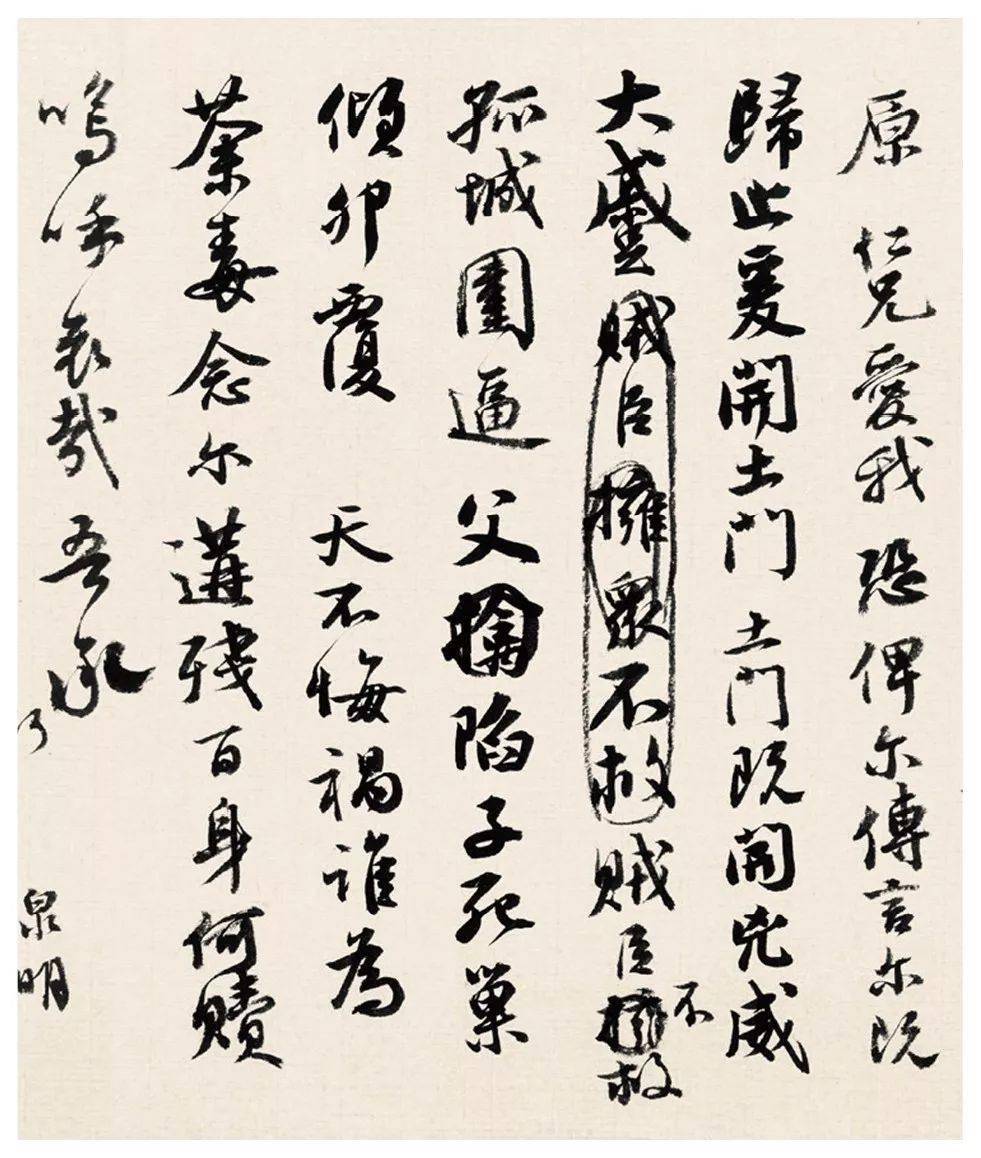 原 仁兄愛我恐俾尔傳言尔既
歸止爰開土門土門既開兇威
大蹙賊臣擁眾不救賊臣不救
孤城圍逼 父擒陷子死巢
傾卵覆 天不悔禍誰為
荼毒念尔遘殘百身何贖
嗚呼哀哉吾承
乃 泉明